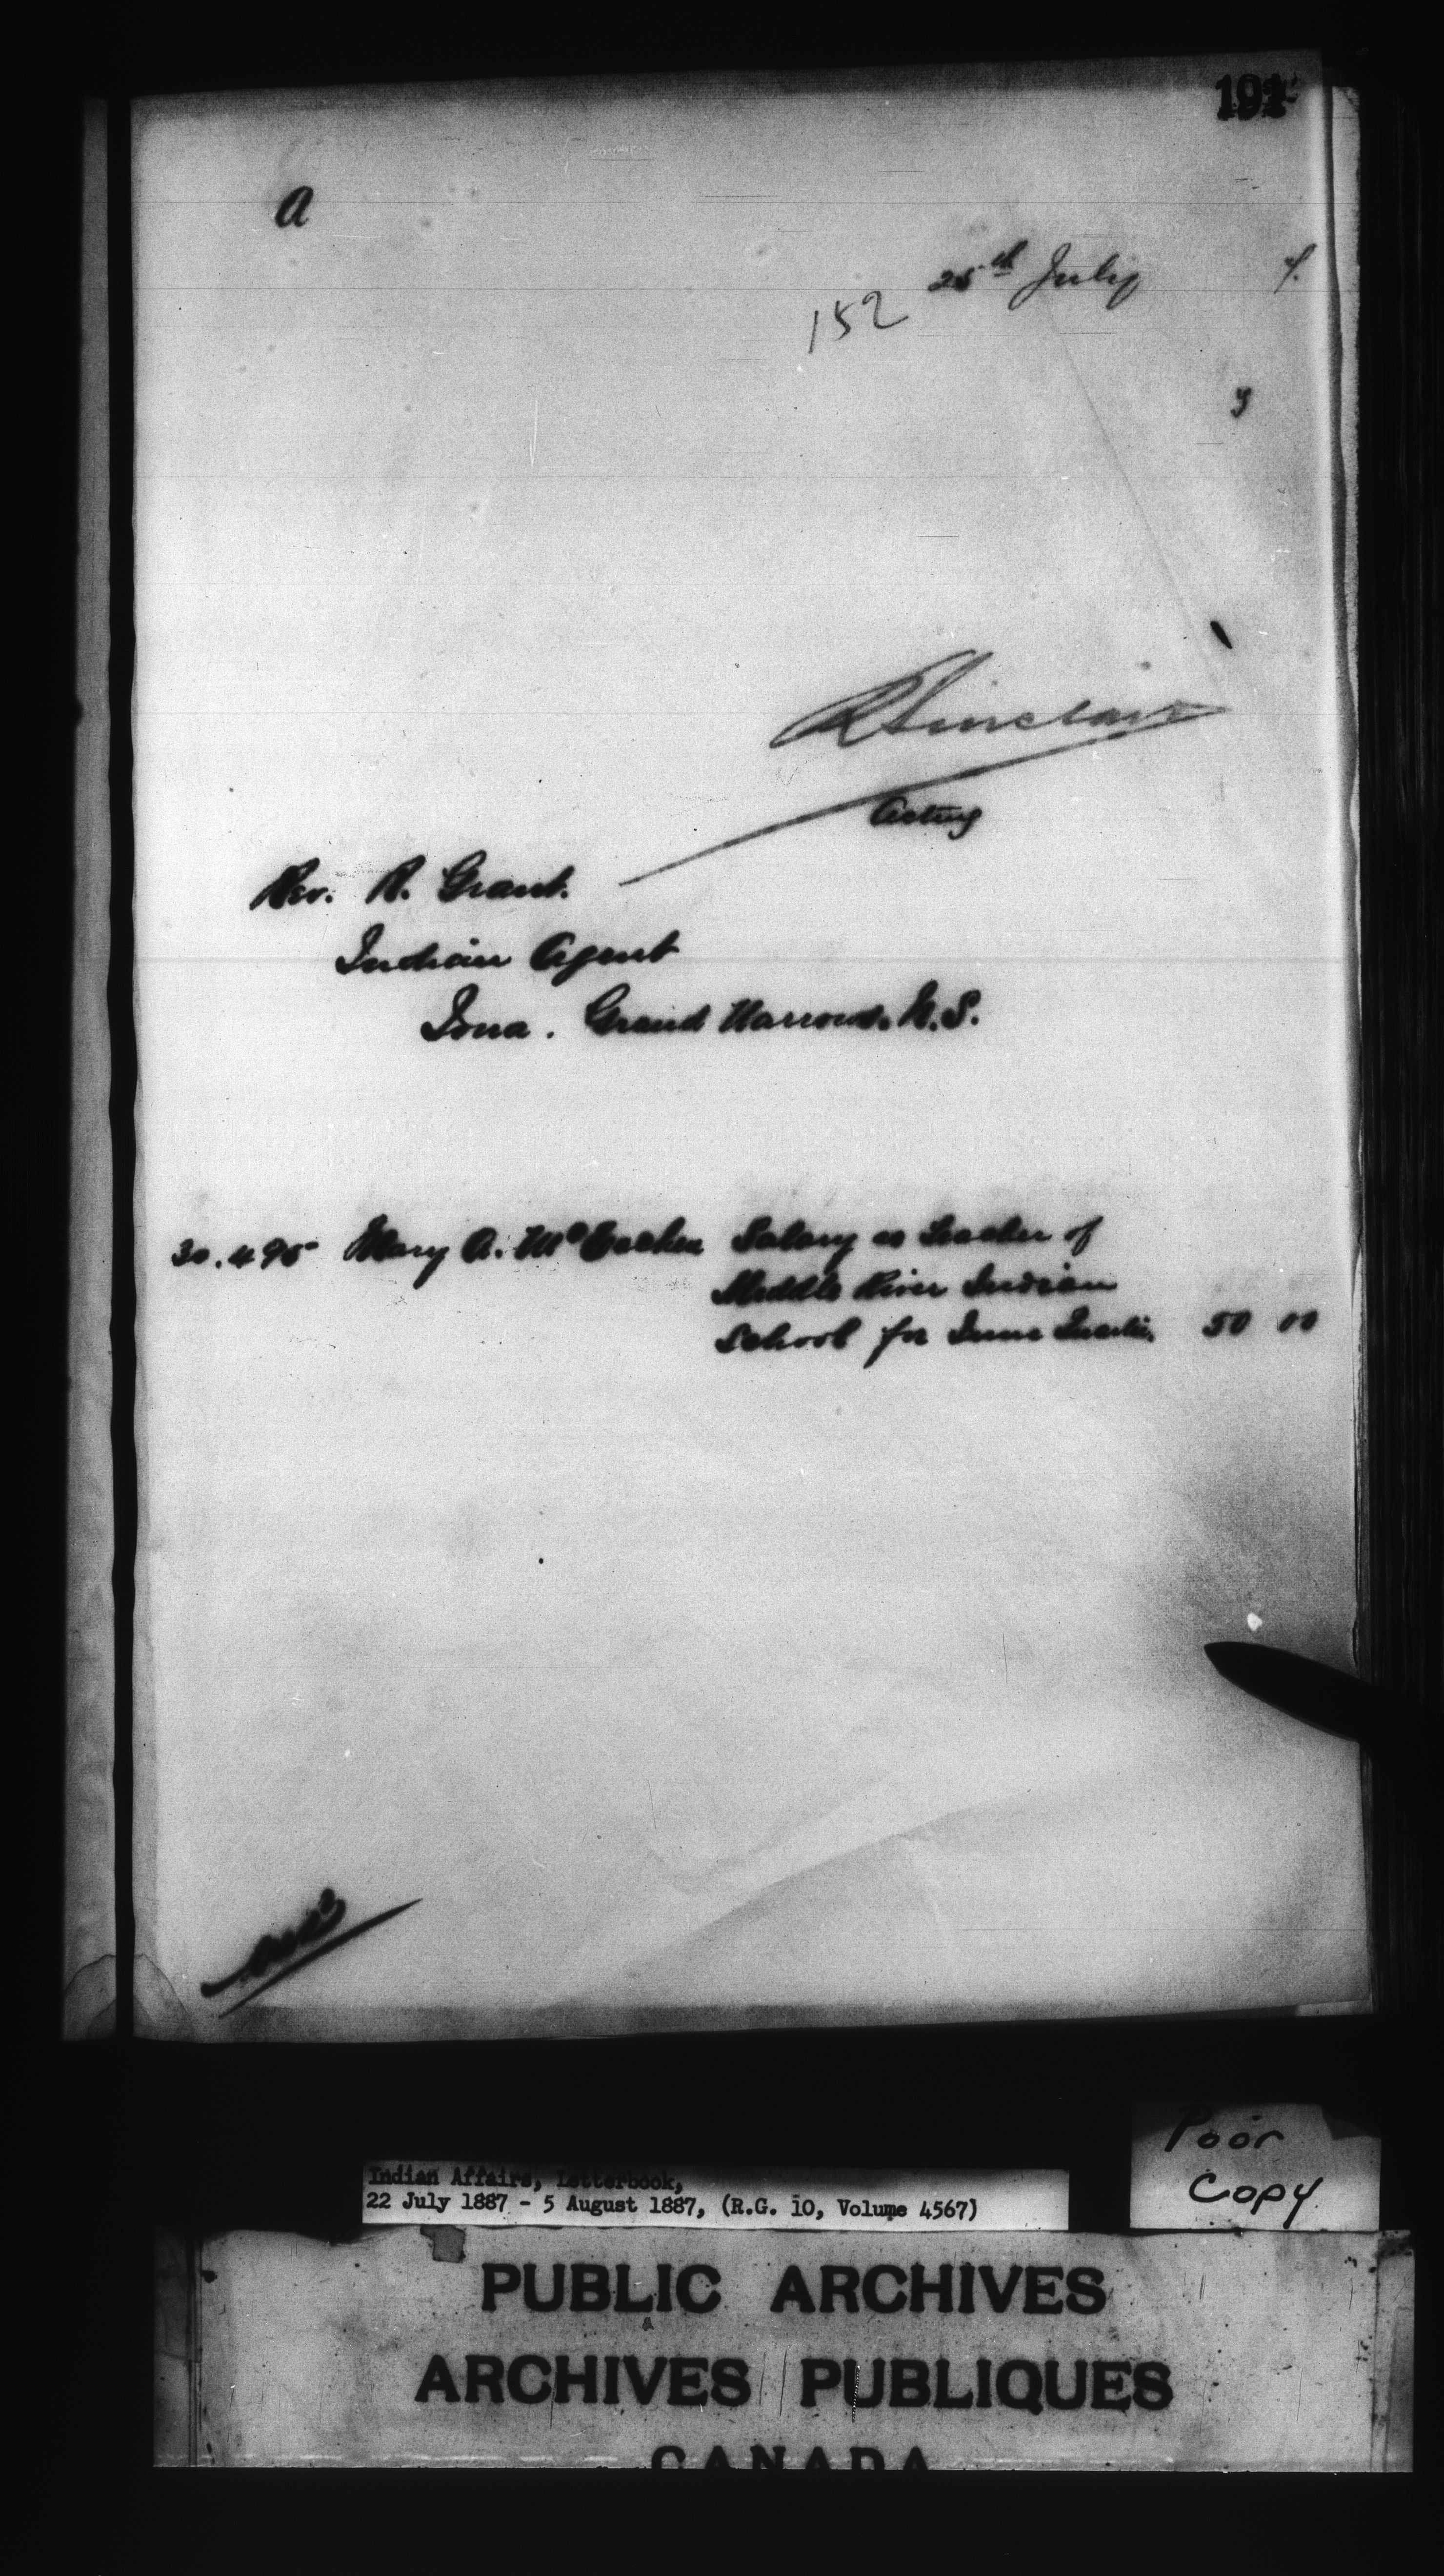 191
A
25th July 7.
152
y
R Sinclair
Acting
Rev. R. Grant.
Indian Agent
Iona. Grand Narrows. N.S.
30.495 Mary A. McEachen Salary as Teacher of
Middle River Indian
School for June Quarter. 50 00
Poor
Copy
Indian Affairs, Letterbook,
22 July 1887 - 5 August 1887, (R.G. 10, Volume 4567)
PUBLIC ARCHIVES
ARCHIVES PUBLIQUES
CANADA